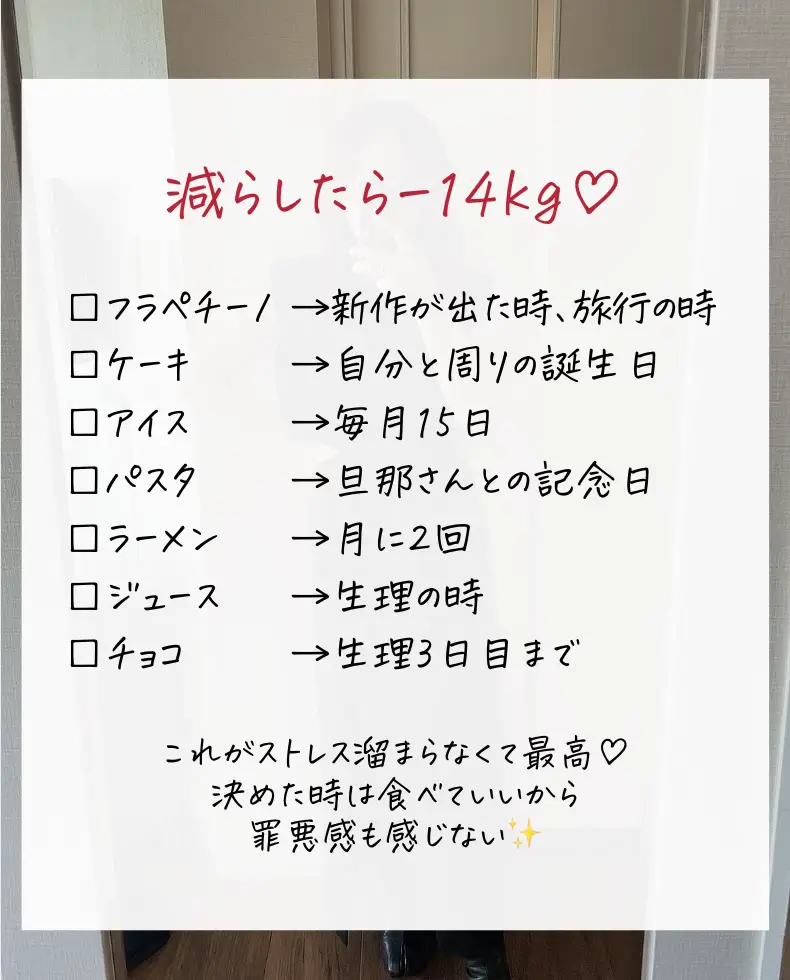 減らしたらー14kg♡
□フラペチーノ →新作が出た時、旅行の時
□ケーキ →自分と周りの誕生日
□アイス →毎月15日
□パスタ →旦那さんとの記念日
□ラーメン →月に2回
□ジュース →生理の時
□チョコ →生理3日目まで
これがストレス溜まらなくて最高♡
決めた時は食べていいから
罪悪感も感じない✨